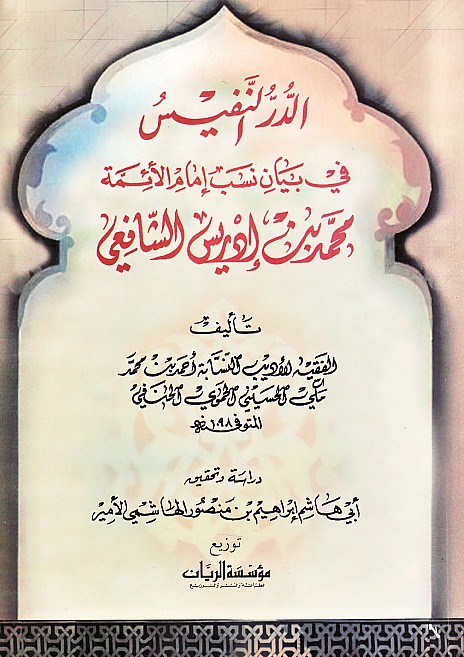 الدُّرُّ النَّفِيسُ
في بَيَانِ نَسَبِ إمَامِ الأئِمَّة
محمّد بن إدريس الشّافعي
تأليف
الفقيه الأديب النسّابة أحمد بن محمّد
مكّي الحسيني الحموي الحنفي
المتوفى ١٠٩٨هـ
دراسة وتحقيق
أبي هاشم إبراهيم بن منصور الهاشمي الأمير
توزيع
مؤسّسة الريّان
للطباعة والنشر والتوزيع